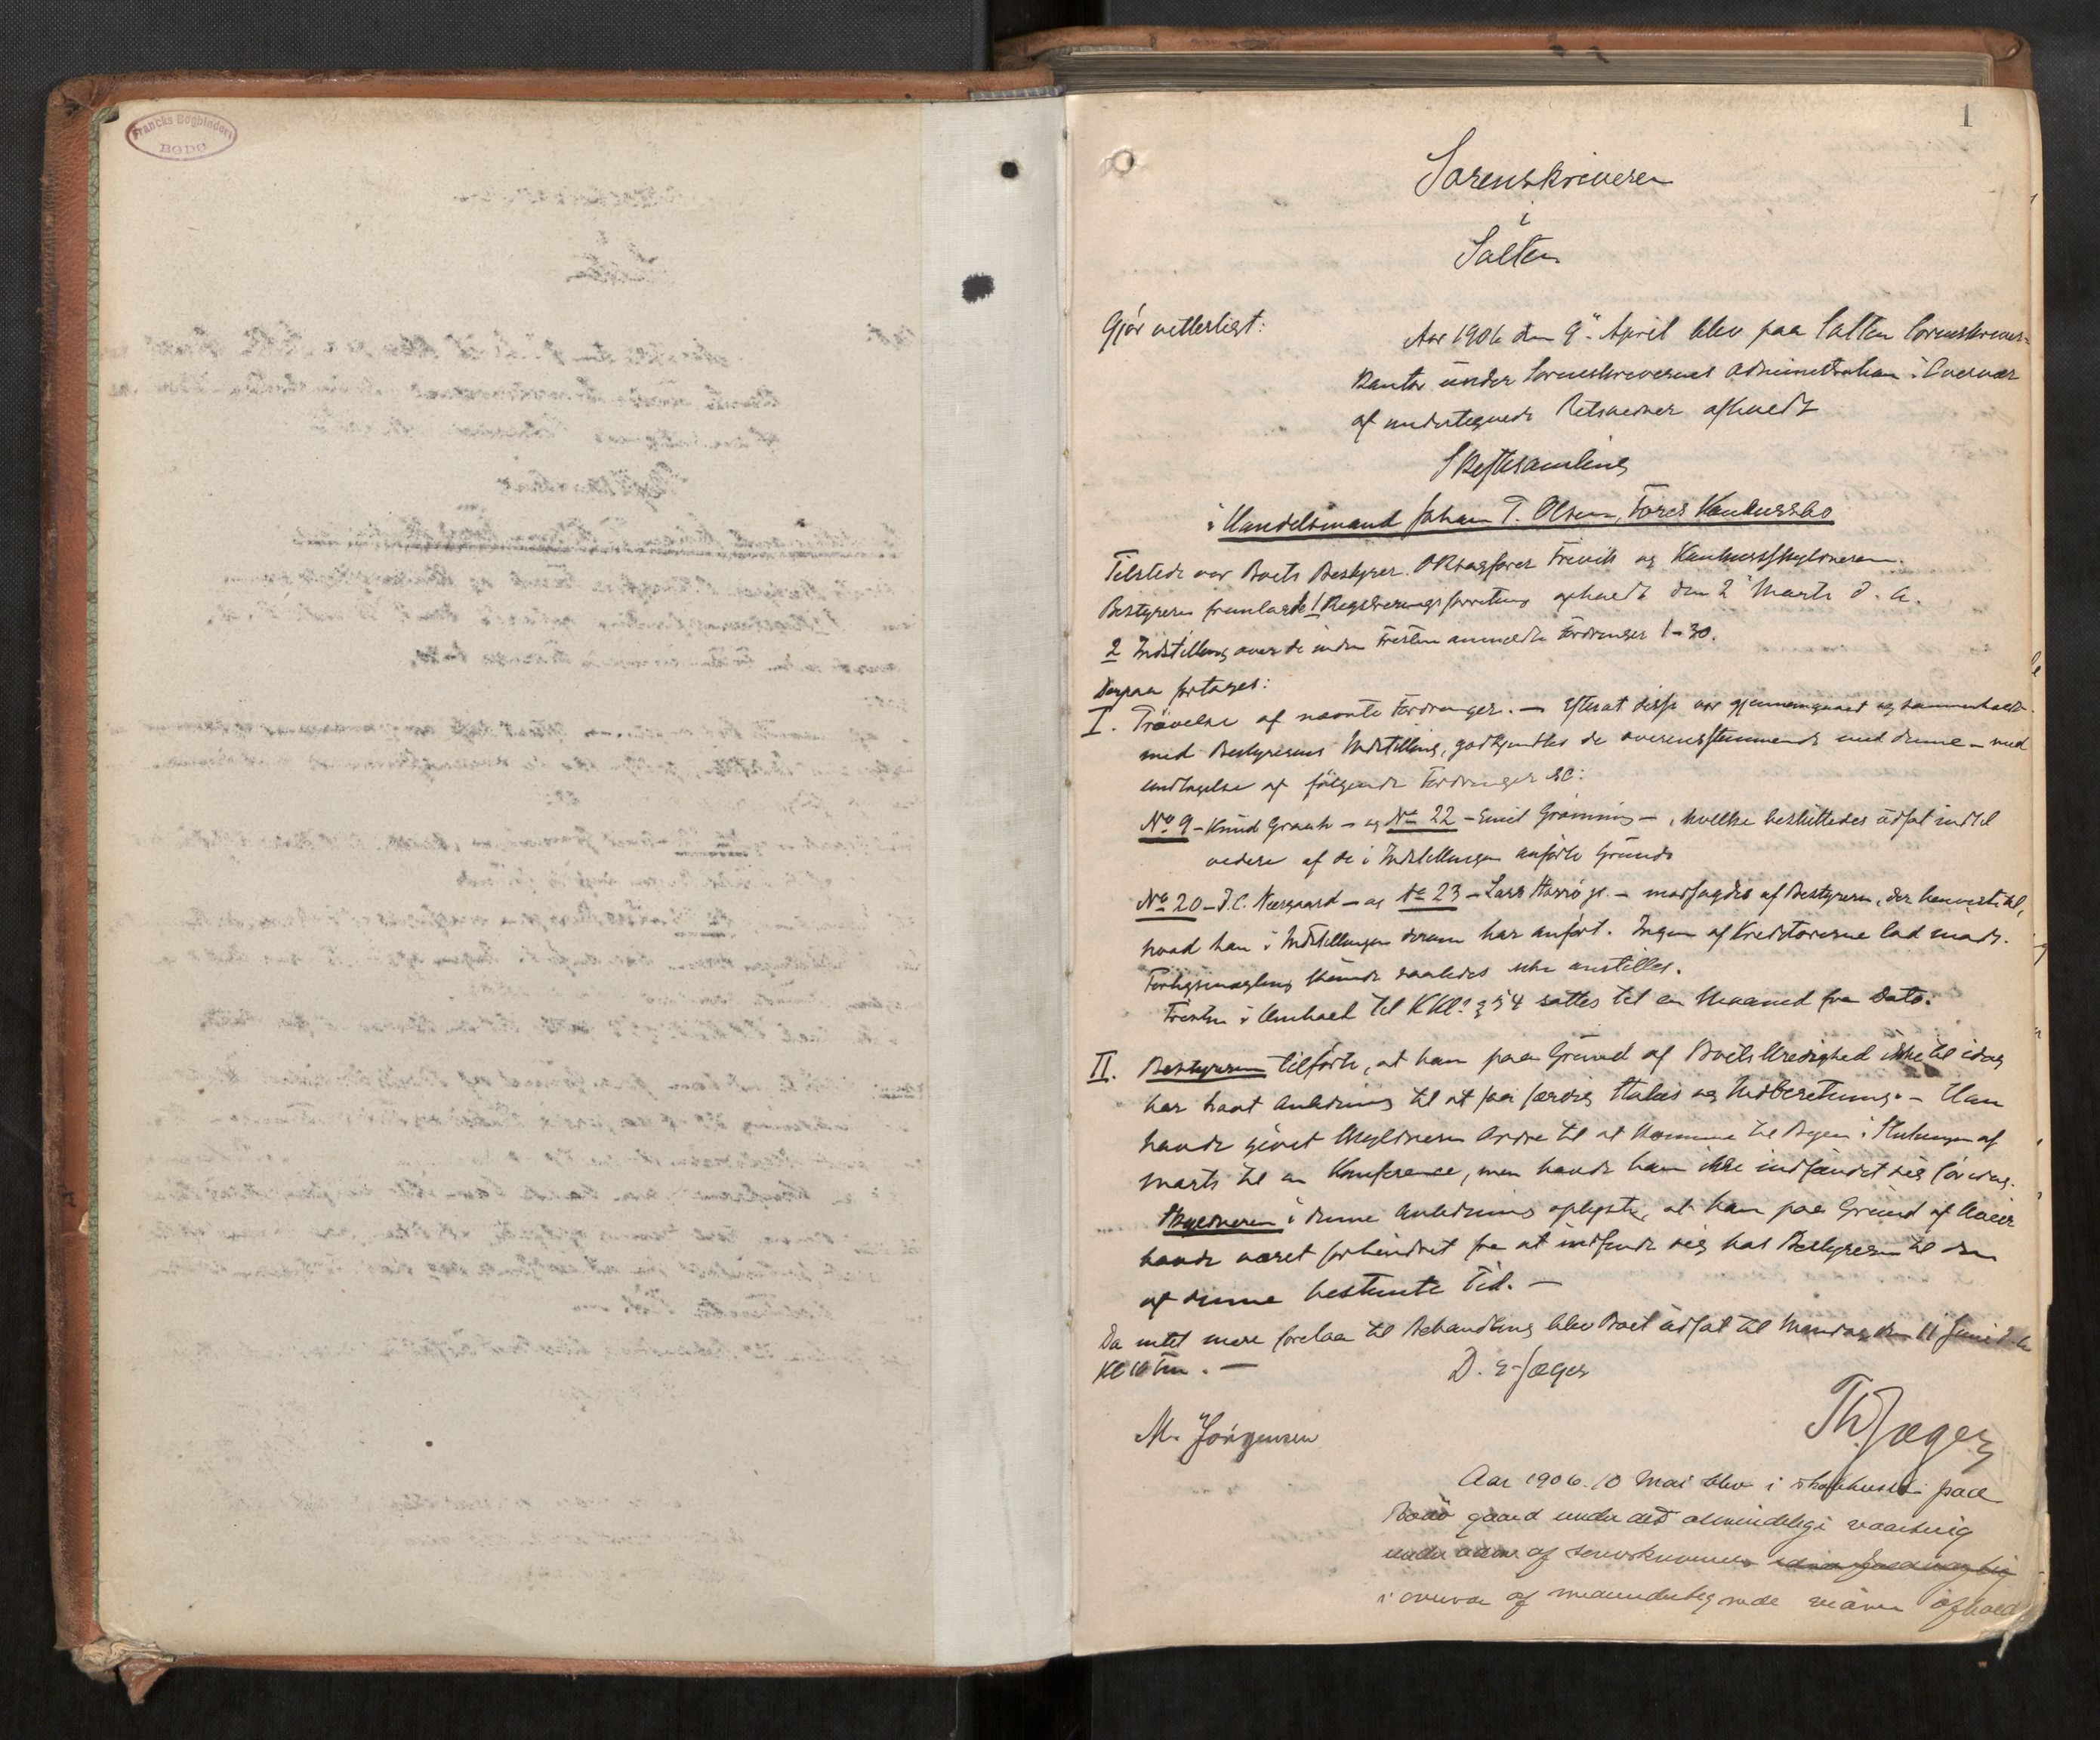 Francks Bogbinderi
BODØ
1
Sorenskriveren
i
Salten
Gjør vitterligt:
Aar 1906 den 9de April blev paa Salten Sorenskriver-
kontor under Sorenskriverens Administration i Overvær
af undertegnede Retsvidner afholdt
Skiftesamling
i Handelsmand Johan T. Olsen, Fores Konkursbo
Tilstede var Boets Bestyrer. O Rsagfører Friis og Konkursskyldneren.
Bestyreren fremlagde 1 Registreringsforretning afholdt den 2 Marts d. A.
2 Indstilling over de inden Fristen anmeldte Fordringer 1-30.
Derpaa foretoges:
I. Prøvelse af nævnte Fordringer. — Efterat disse var gjennemgaaet og sammenholdt
med Bestyrerens Indstilling, godkjendtes de overensstemmende med denne – med
undtagelse af følgende Fordringer
No 9 – Knud – og No 22 – Emil Grønning –, hvilke besluttedes udsat indtil
videre af de i Indstillingen anførte Grunde
No 20 – J.C. Neergaard – og No 23 – Lars – modsagdes af Bestyreren, der henviste til,
hvad han i Indstillingen derom har anført. Ingen af Kreditorerne lod møde.
Forligsmægling kunde saaledes ikke anstilles.
Fristen i Henhold til KKl. § 54 sattes til en Maaned fra Dato.
II. Bestyreren tilførte, at han paa Grund af Boets Uredighed ikke til idag
har havt Anledning til at faa færdig Status og Indberetning. – Han
havde givet Skyldneren Ordre til at komme til Byen i Slutningen af
Marts til en Konference, men havde han ikke indfundet sig før idag.
Skyldneren i denne Anledning oplyste, at han paa Grund af
havde været forhindret fra at indfinde sig hos Bestyreren til den
af denne bestemte Tid. —
Da intet mere forelaa til Behandling blev Boet udsat til Mandag den 11 Juni d. A.
Kl 10 Fm. —
D. E Jæger
Th Jæger
M. Jørgensen
Aar 1906. 10 Mai blev i paa
Bodø gaard under det almindelige vaarting
under adm af sorenskriveren
i overvær af medundertegnede vidner afhold